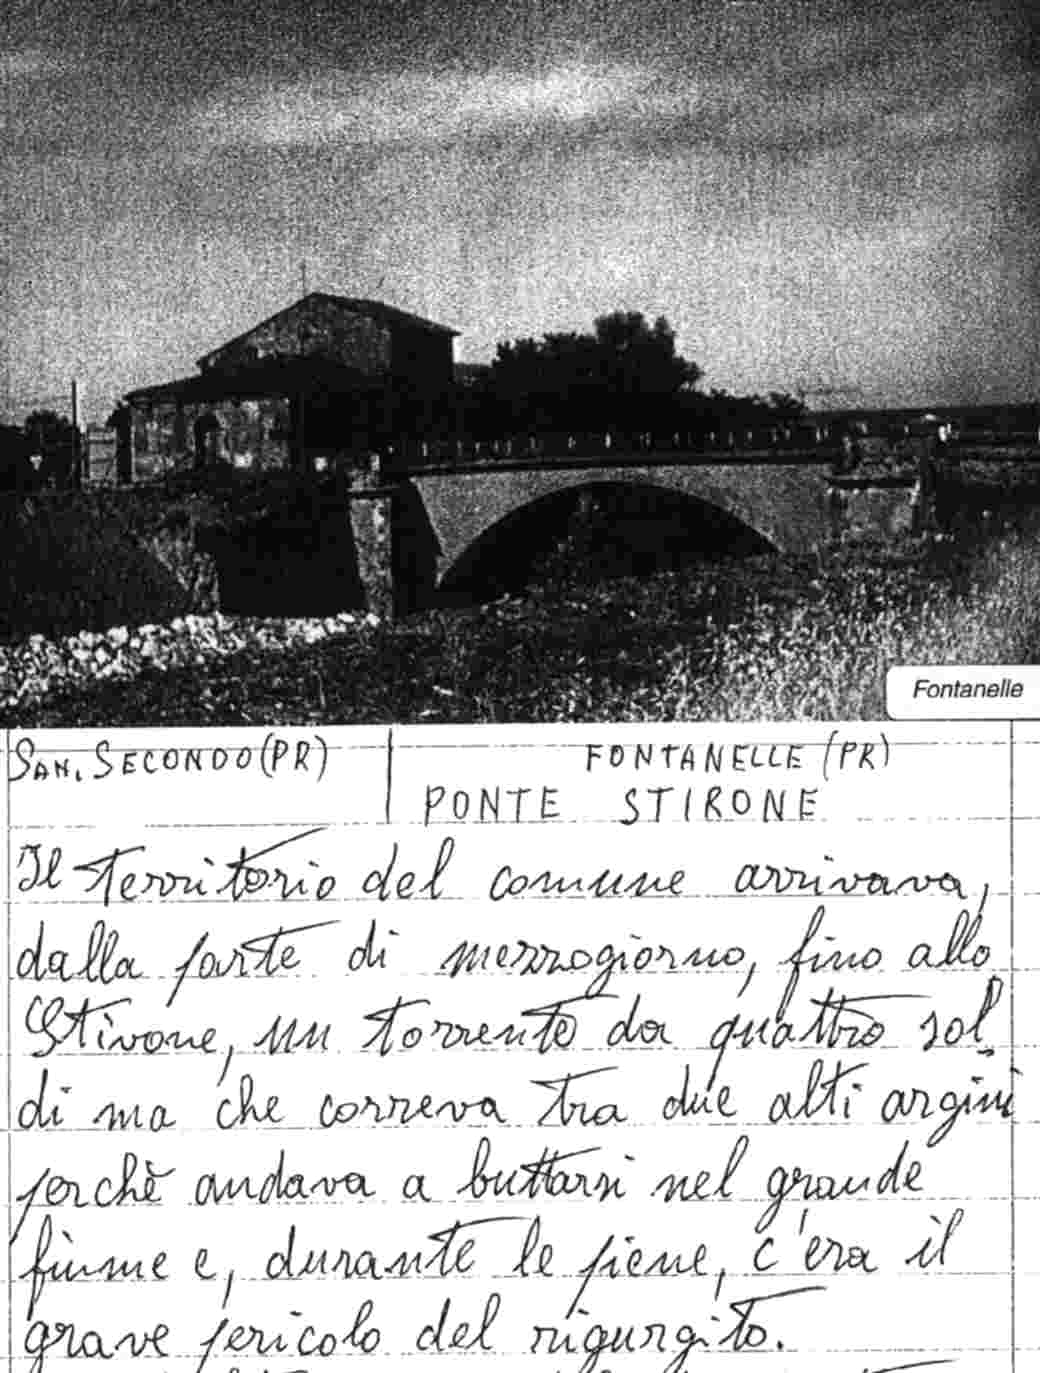 Fontanelle
SAN. SECONDO (PR)
FONTANELLE (PR)
PONTE STIRONE
Il territorio del comune arrivava,
dalla parte di mezzogiorno, fino allo
Stivone, un torrente da quattro sol
di ma che correva tra due alti argini
perchè andava a buttarsi nel grande
fiume e, durante le piene, c'era il
grave pericolo del rigurgito.